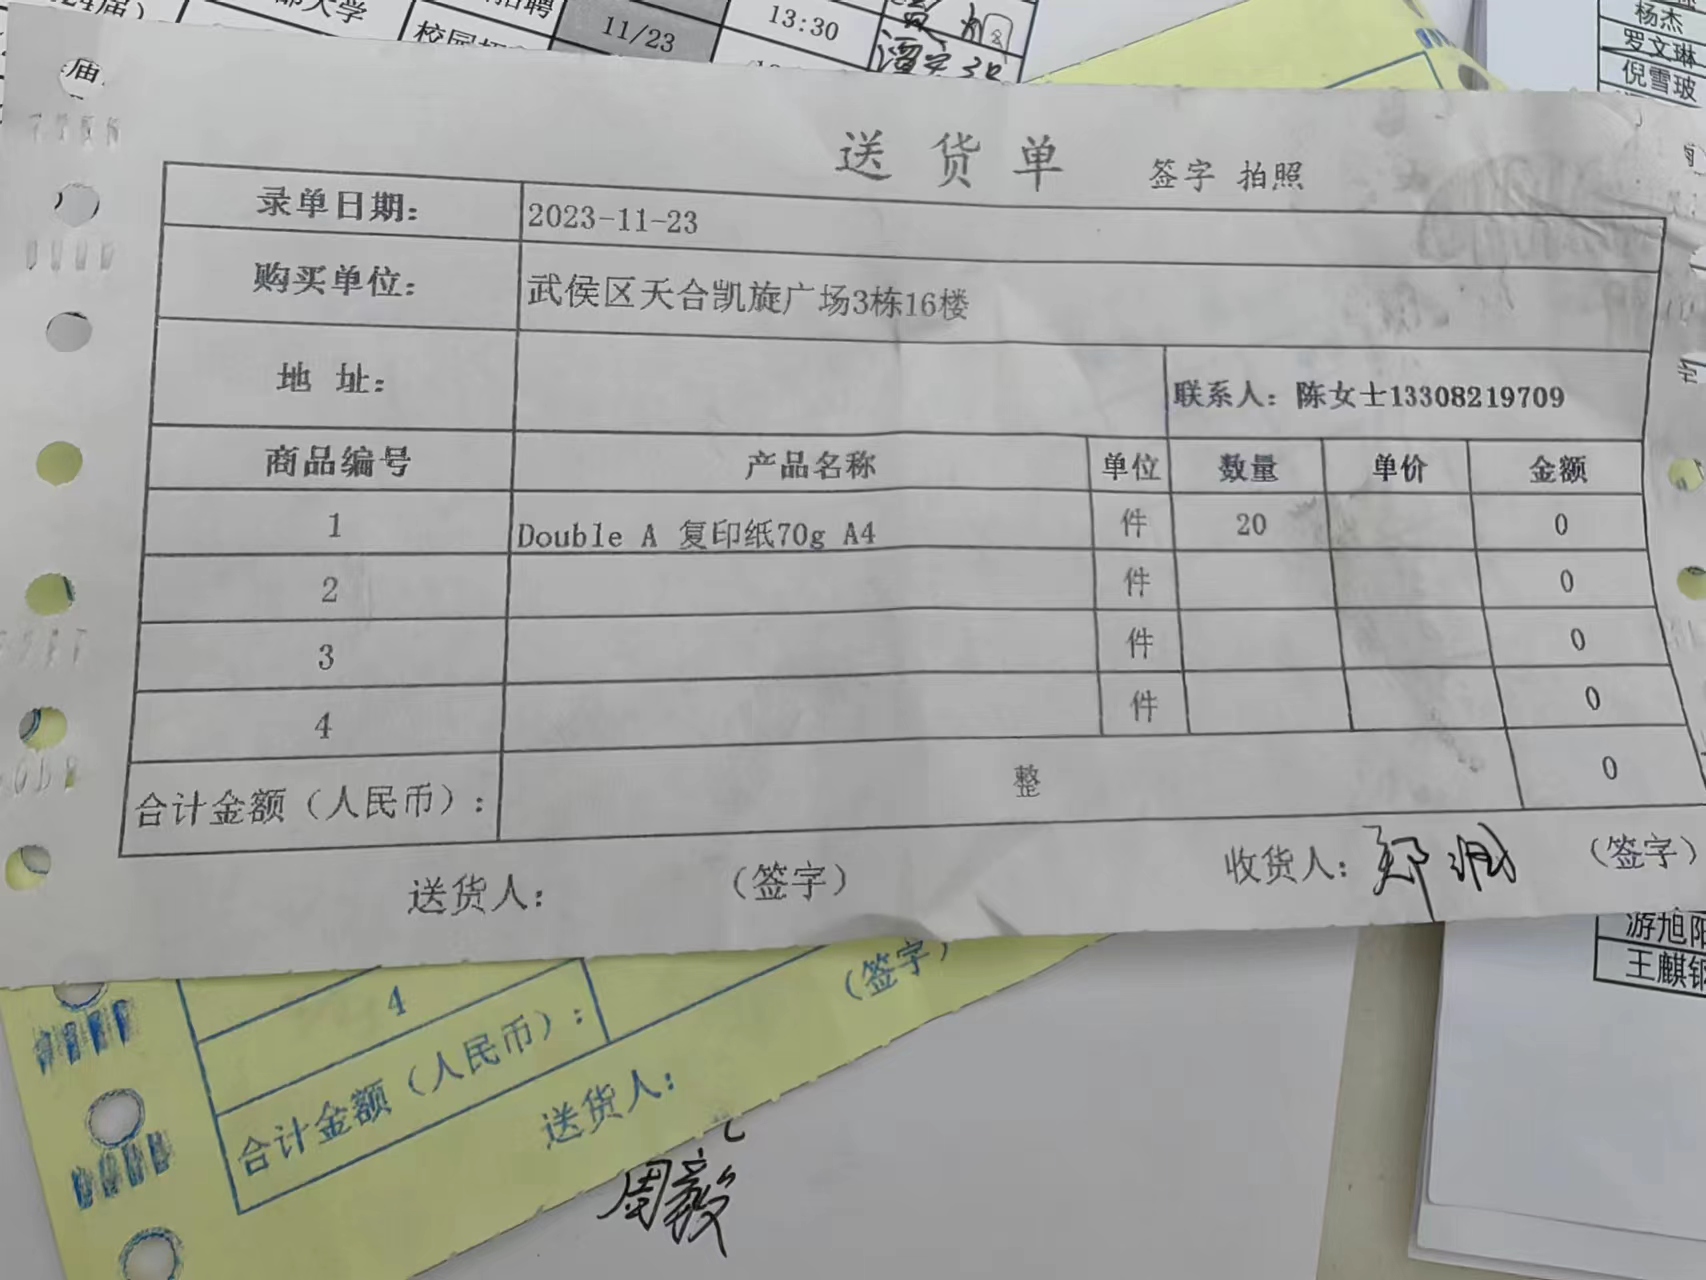 大学
校园
11/23
13:30
杨杰
罗文琳
倪雪玻
庙
送货单 签字 拍照
录单日期: 2023-11-23
购买单位: 武侯区天合凯旋广场3栋16楼
地 址: 联系人: 陈女士13308219709
商品编号 产品名称 单位 数量 单价 金额
1 Double A 复印纸70g A4 件 20 0
2 件 0
3 件 0
4 件 0
合计金额(人民币): 整 0
送货人: (签字) 收货人: 郑 (签字)
游旭阳
王麒
4
合计金额(人民币):
送货人: (签字)
周毅